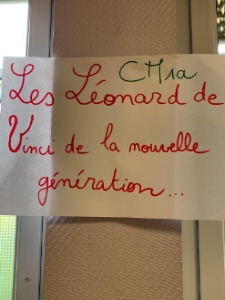 CM1a
Les Léonard de
Vinci de la nouvelle
génération...